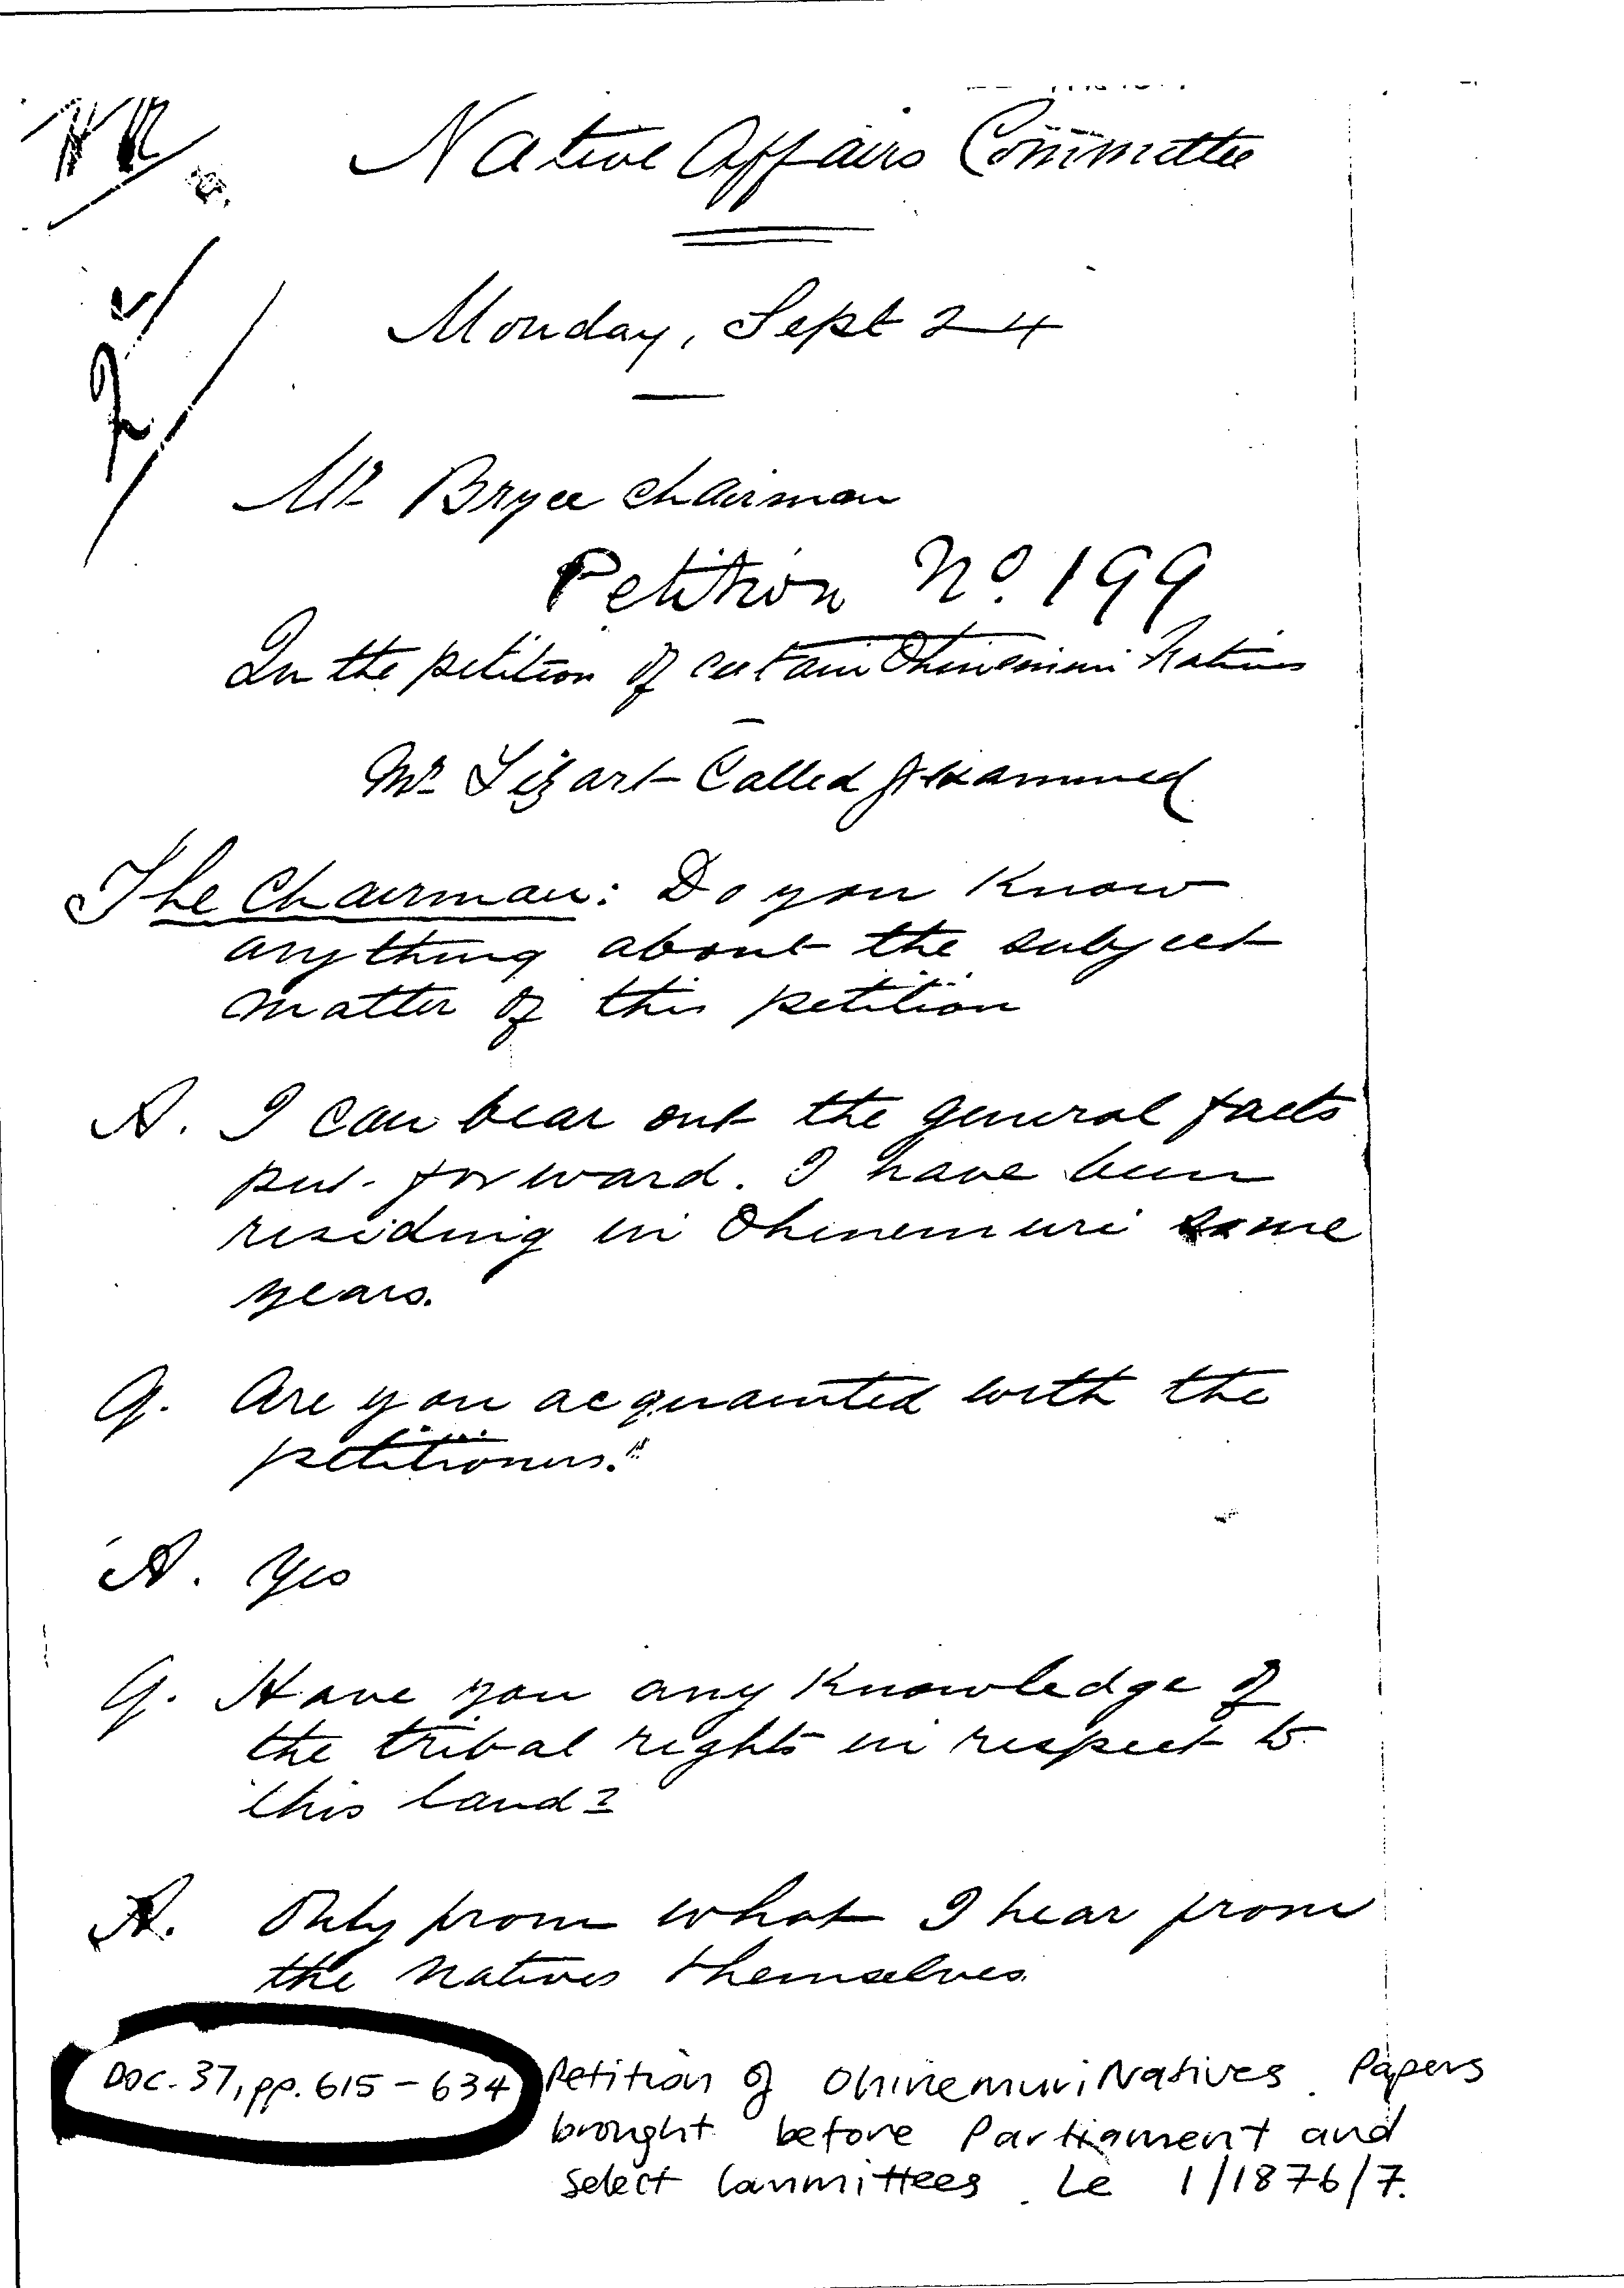 Native Affairs Committee
Monday, Sept 24
Mr Bryce Chairman
Petition No. 199
In the petition of certain Ohinemuri Natives
Mr Lizart Called & examined
The Chairman: Do you know
anything about the subject
matter of this petition
A. I can bear out the general facts
put forward. I have been
residing in Ohinemuri some
years.
Q. Are you acquainted with the
petitioners.
A. Yes
Q. Have you any knowledge of
the tribal rights in respect to
this land?
A. Only from what I hear from
the natives themselves.
Doc. 37, pp. 615 - 634
Petition of Ohinemuri Natives. Papers
brought before Parliament and
Select Committees. Le 1/1876/7.